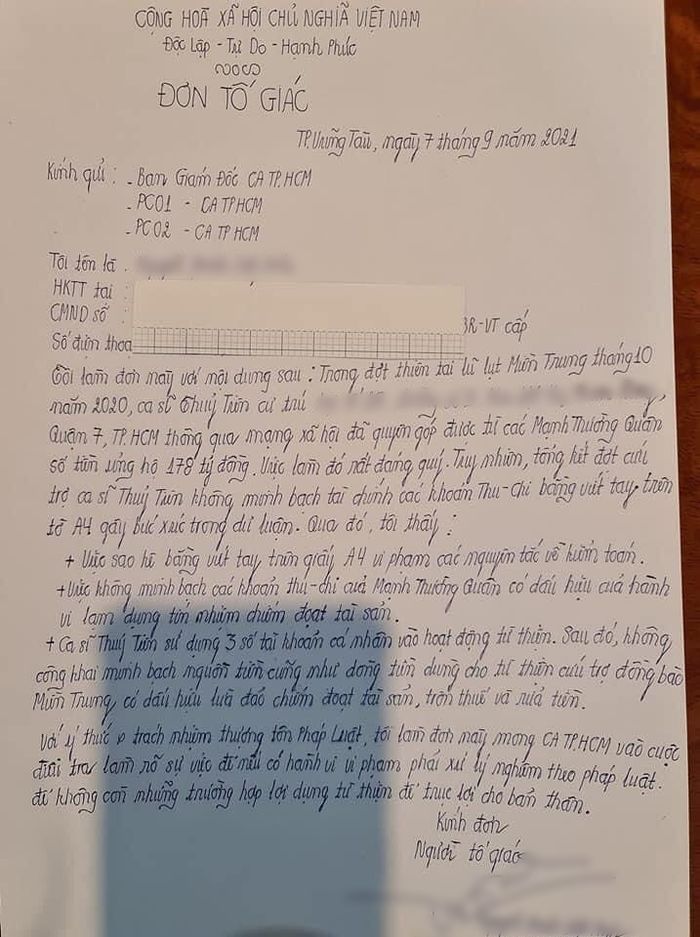 CỘNG HOÀ XÃ HỘI CHỦ NGHĨA VIỆT NAM
Độc Lập - Tự Do - Hạnh Phúc
ĐƠN TỐ GIÁC
TP. Vũng Tàu, ngày 7 tháng 9 năm 2021
Kính gửi : - Ban Giám Đốc CA TP. HCM
- PC01 - CA TP HCM
- PC02 - CA TP HCM
Tôi tên là :
HKTT tại :
CMND số : BR-VT cấp
Số điện thoạ
Tôi làm đơn này với nội dung sau : Trong đợt thiên tai lũ lụt Miền Trung tháng 10
năm 2020, ca sĩ Thuỷ Tiên cư trú
Quận 7, TP. HCM thông qua mạng xã hội đã quyên góp được từ các Mạnh Thường Quân
số tiền ủng hộ 178 tỷ đồng. Việc làm đó rất đáng quý. Tuy nhiên, tổng kết đợt cứu
trợ ca sĩ Thuỷ Tiên không minh bạch tài chính các khoản Thu-Chi bằng viết tay trên
tờ A4 gây bức xúc trong dư luận. Qua đó, tôi thấy :
+ Việc sao kê bằng viết tay trên giấy A4 vi phạm các nguyên tắc về kiểm toán.
+ Việc không minh bạch các khoản thu-chi của Mạnh Thường Quân có dấu hiệu của hành
vi lạm dụng tín nhiệm chiếm đoạt tài sản.
+ Ca sĩ Thuỷ Tiên sử dụng 3 số tài khoản cá nhân vào hoạt động từ thiện. Sau đó, không
công khai minh bạch nguồn tiền cũng như dòng tiền dùng cho từ thiện cứu trợ đồng bào
Miền Trung, có dấu hiệu lừa đảo chiếm đoạt tài sản, trốn thuế và rửa tiền.
Với ý thức trách nhiệm thượng tôn Pháp Luật, tôi làm đơn này mong CA TP. HCM vào cuộc
điều tra làm rõ sự việc để nếu có hành vi vi phạm phải xử lý nghiêm theo pháp luật.
để không còn những trường hợp lợi dụng từ thiện để trục lợi cho bản thân.
Kính đơn
Người tố giác